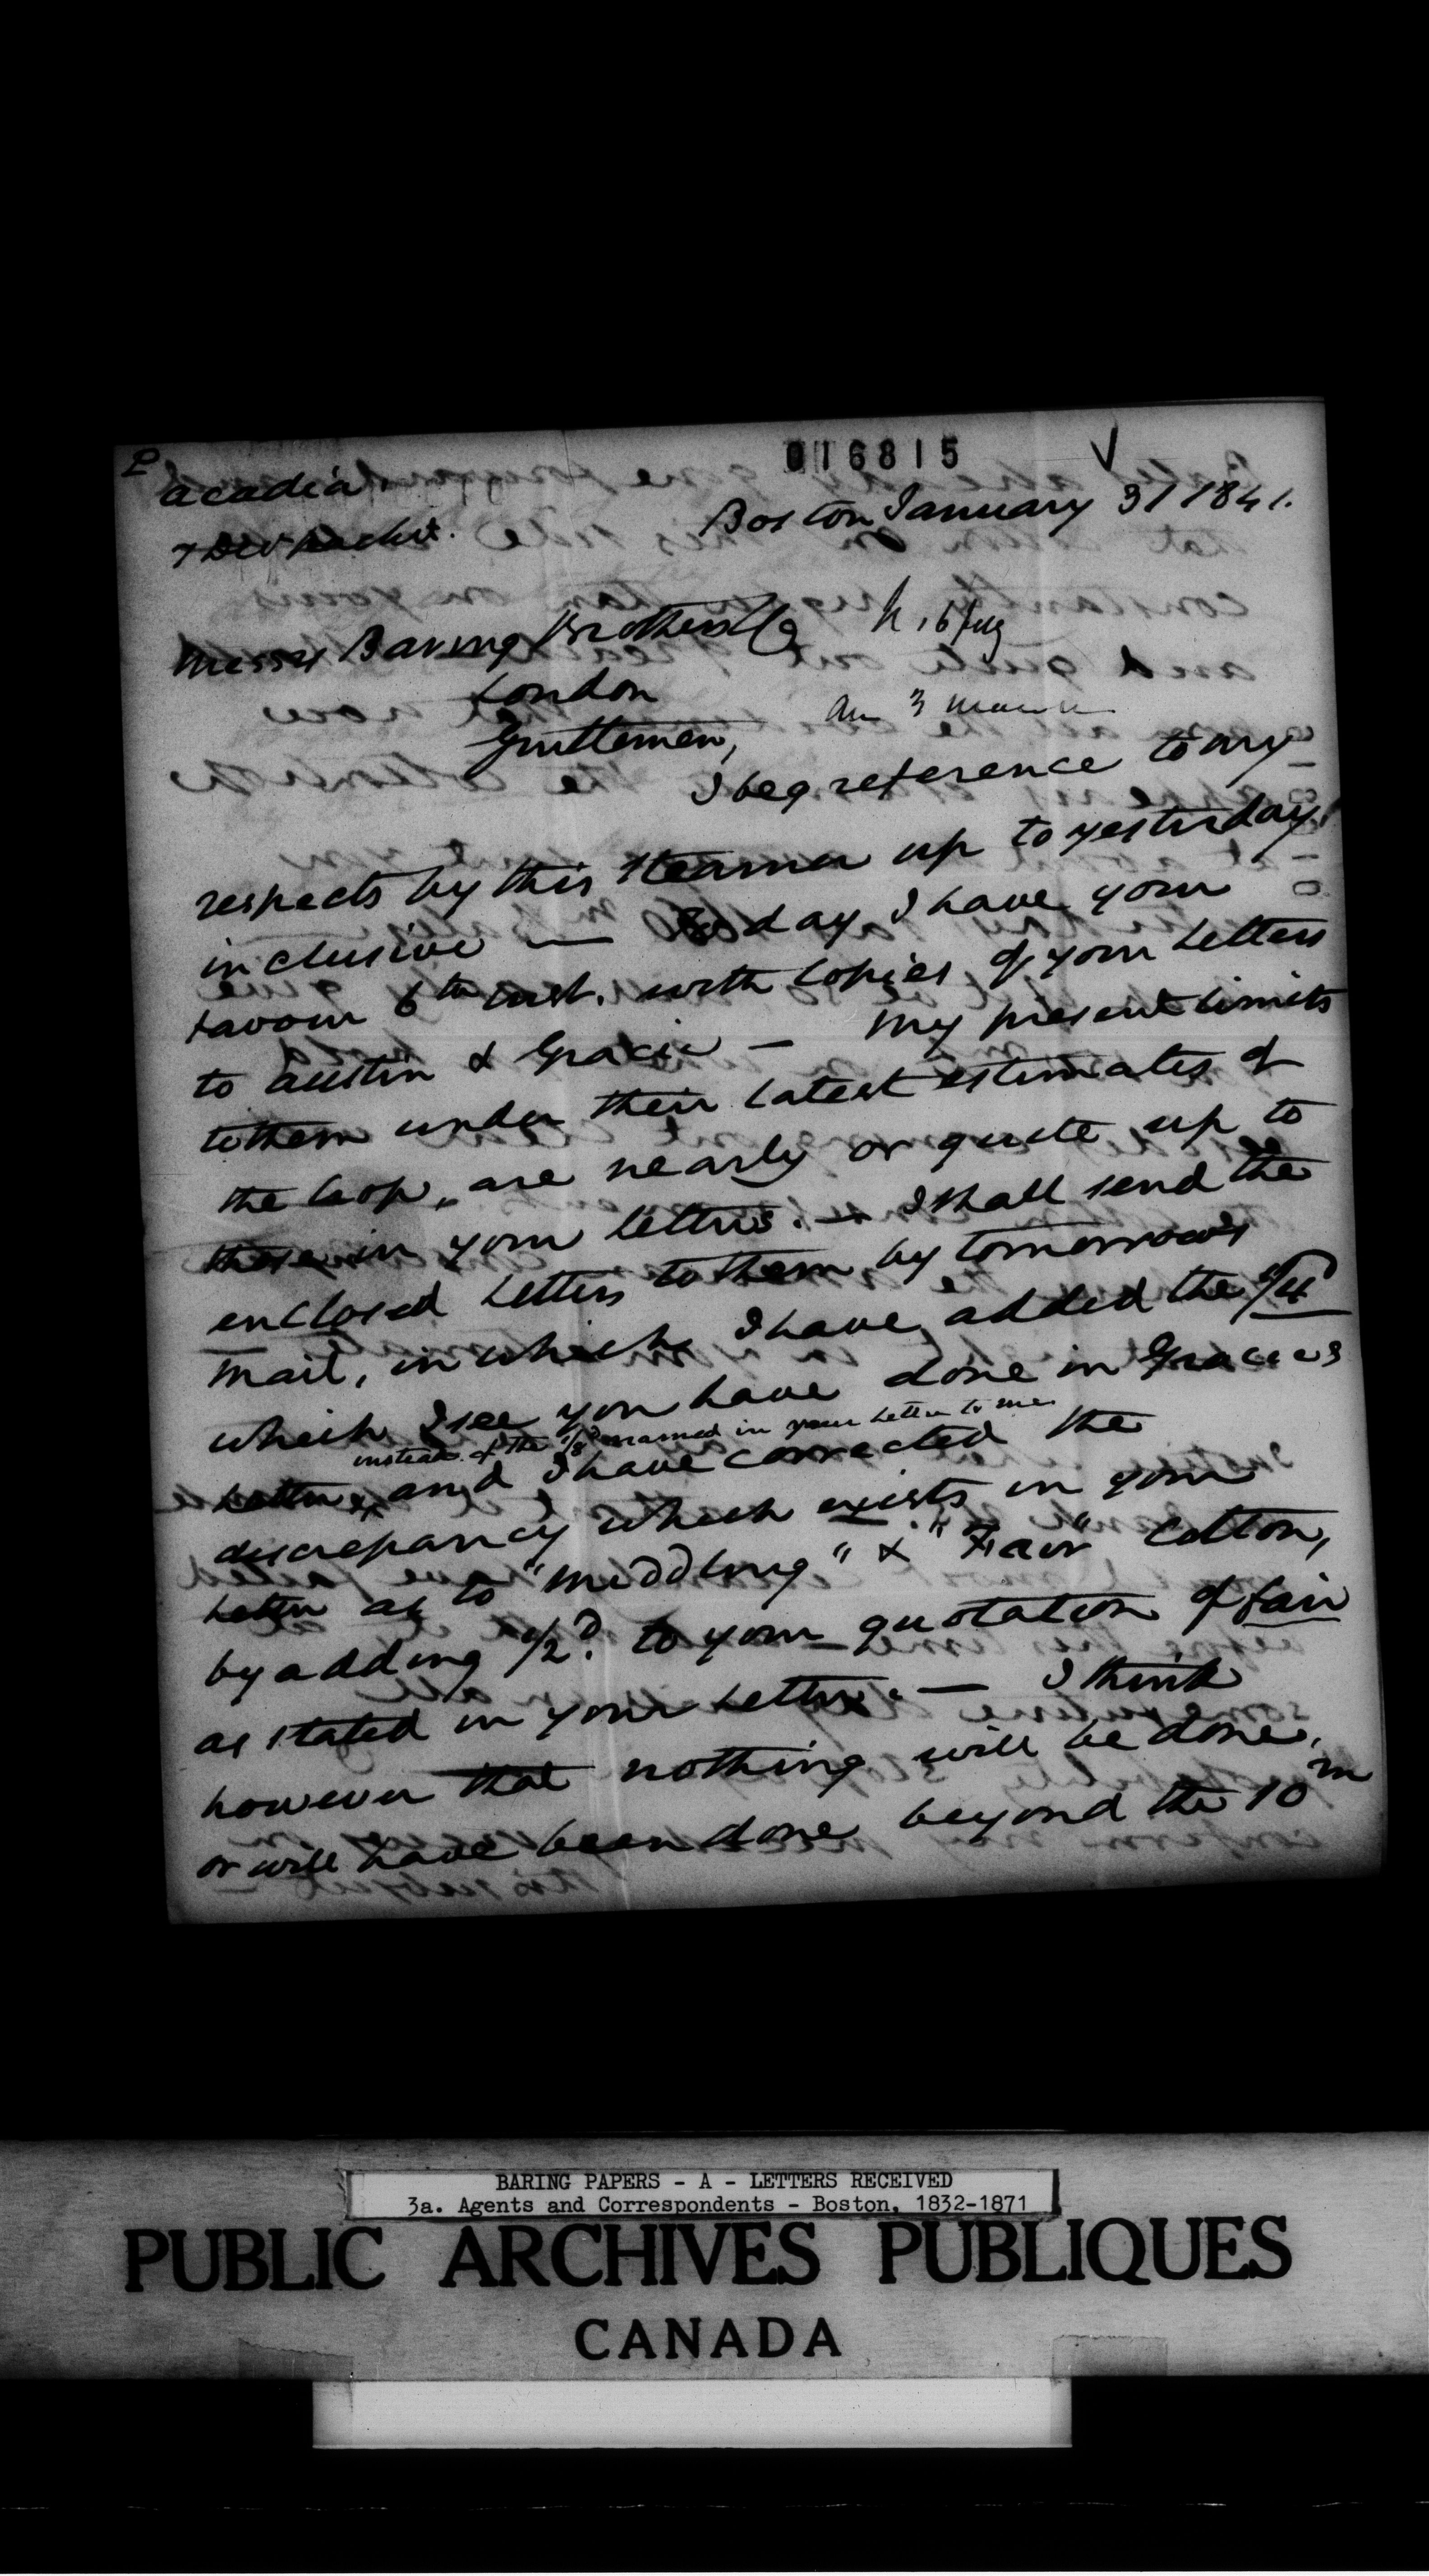 016815
P
Acadia
Boston January 31 1841.
& Dup packet.
Messrs Baring Brothers & Co
London
Gentlemen,
I beg reference to my
respects by this steamer up to yesterday
inclusive — To day I have your
favour 6th inst. with copies of your letters
to Austin & Gracie — My present limits
to them under their latest estimates of
the crop, are nearly or quite up to
those in your letters. — I shall send the
enclosed letters to them by tomorrow's
mail, in which I have added the 1/4
which I see you have done in Gracie's
instead of the 1/8d named in your letter to me
letter x, and I have corrected the
discrepancy which exists in your
letter as to "middling" & "Fair" Cotton,
by adding 1/2d. to your quotation of fair
as stated in your letter. — I think
however that nothing will be done,
or will have been done beyond the 10 m
BARING PAPERS - A - LETTERS RECEIVED
3a. Agents and Correspondents - Boston, 1832-1871
PUBLIC ARCHIVES PUBLIQUES
CANADA